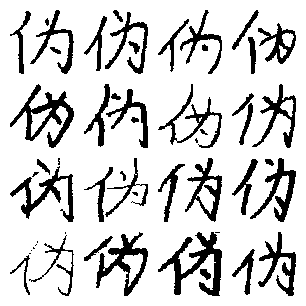 伪伪伪伪
伪伪伪伪
伪伪伪伪
伪伪伪伪